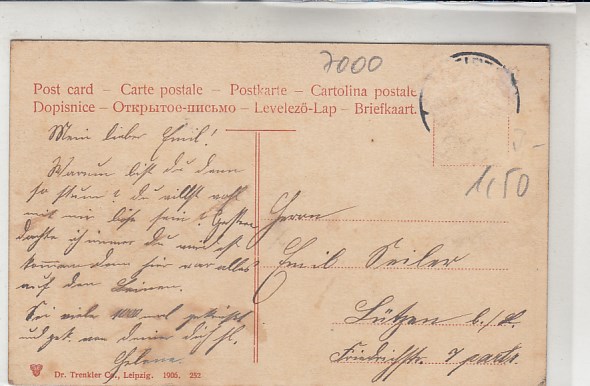 7000
Post card – Carte postale – Postkarte – Cartolina postale
Dopisnice – Открытое-письмо – Levelező-Lap – Briefkaart.
1,50
Mein lieber Emil!
Warum bist du denn
so stumm? du willst wohl
mit mir böse sein? Gestern
dachte ich immer du
kommen denn hier war alles
auf den Beinen.
Sei viele 1000 mal gegrüßt
und gek. von deiner dich
Helene.
Herrn
Emil Seiler
Lützen b/L.
Friedrichstr. 7 part.
Dr. Trenkler Co., Leipzig. 1906. 253